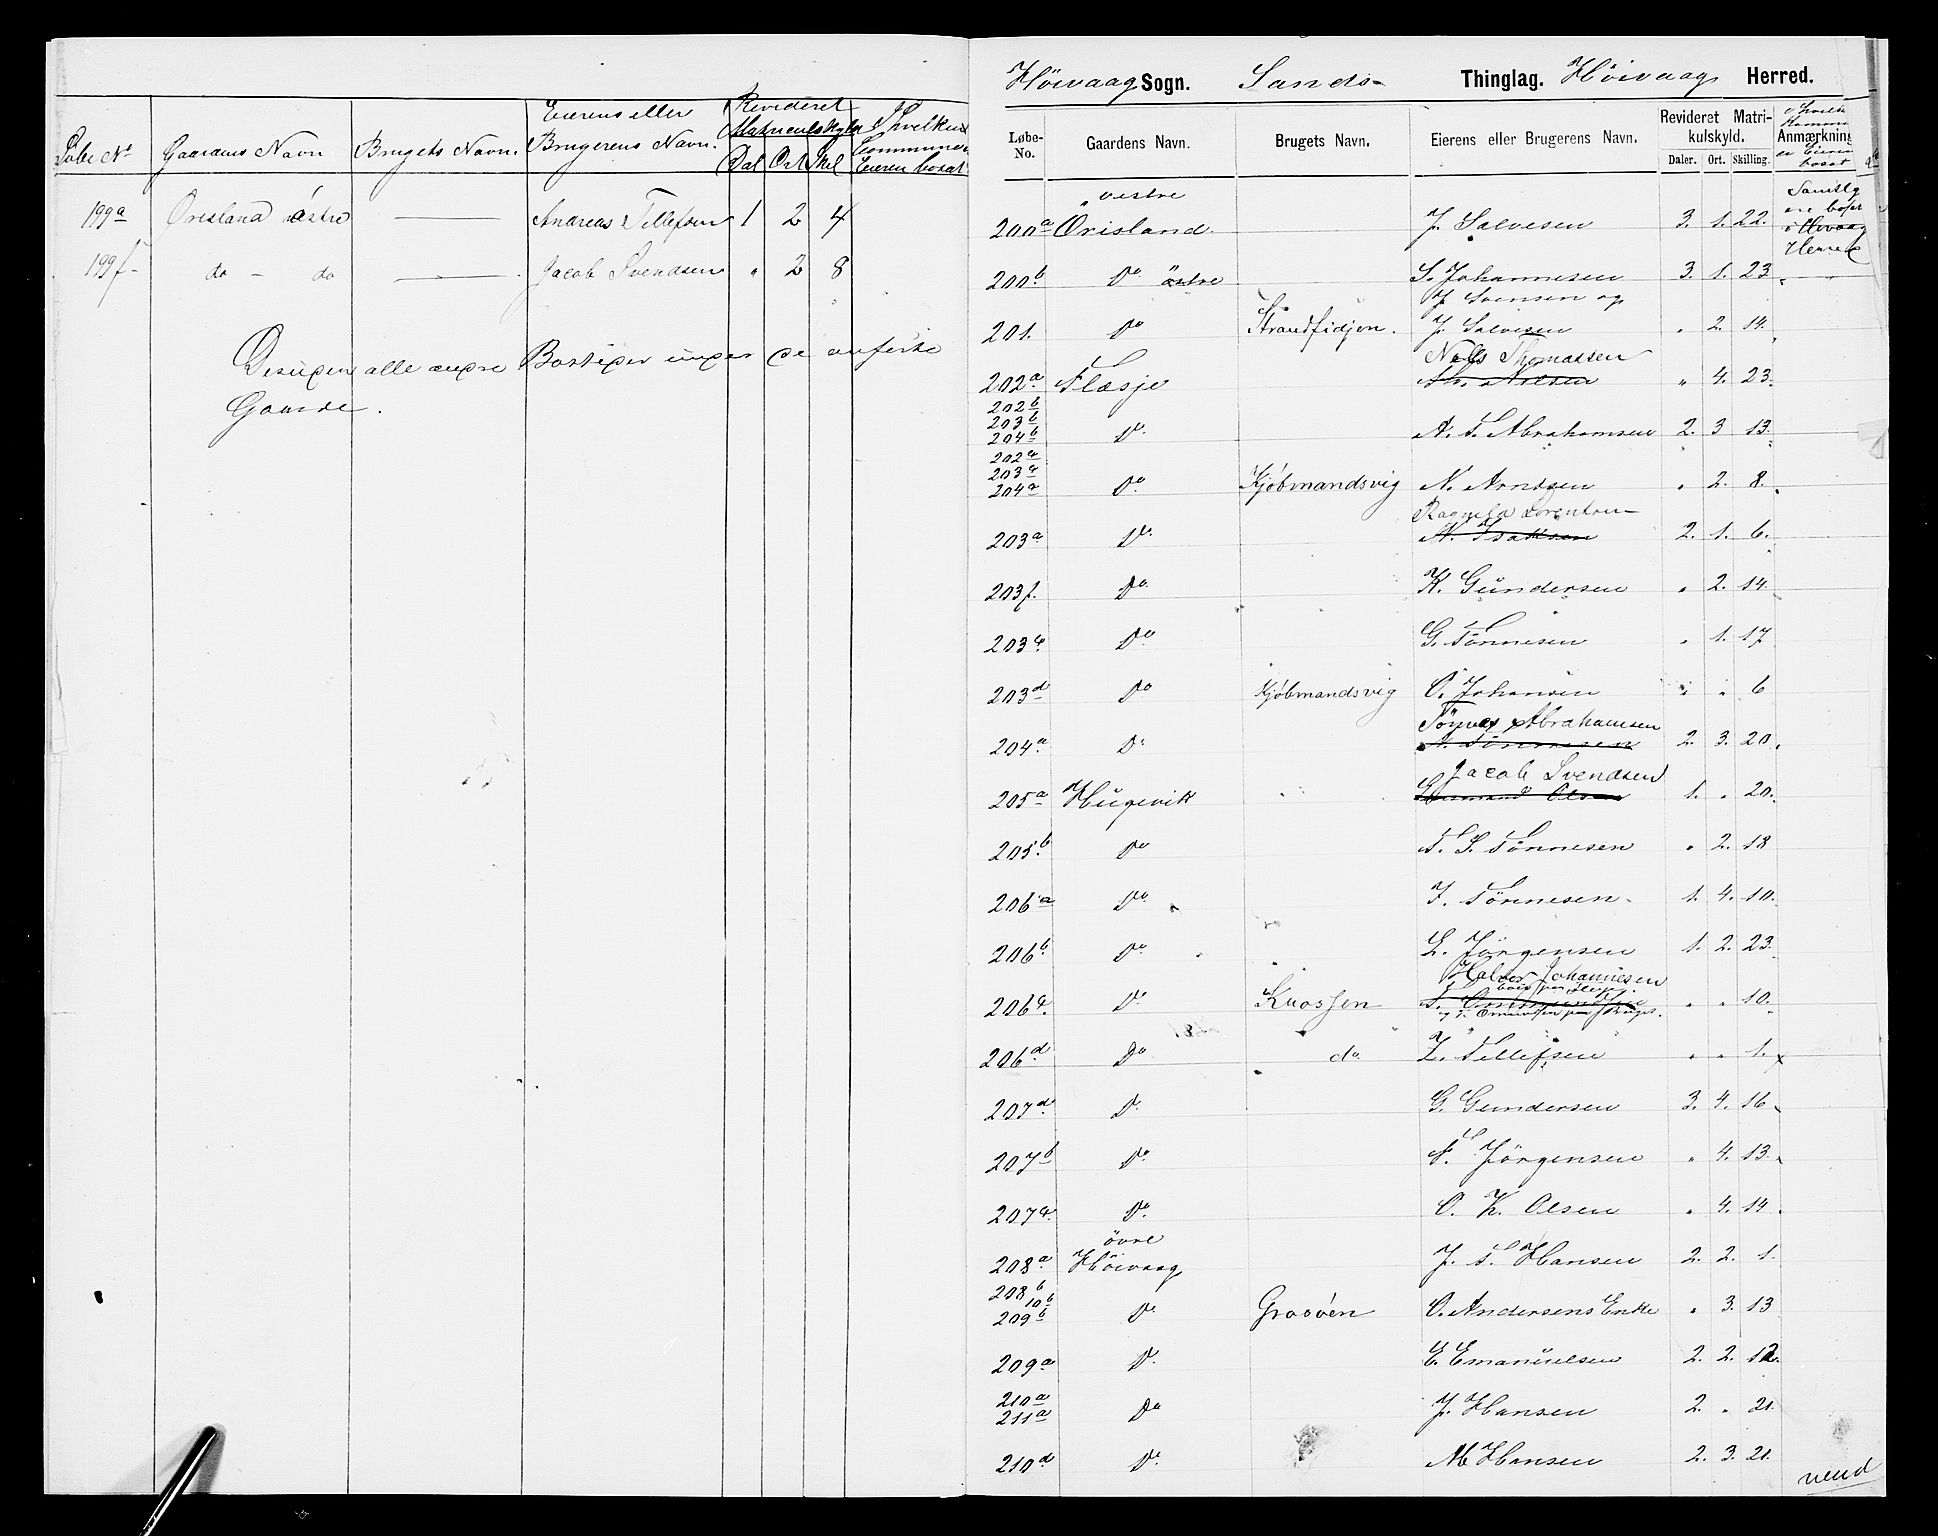 Løbe No Gaardens Navn Brugets Navn. Eierens eller Brugerens Navn. Revideret Matriculskyld Dal Ort Skil I hvilken Commune er Eieren bosat
199a Örisland östre — Andreas Tellefsen 1 2 4
199f do - do — Jacob Svendsen " 2 8
Desuden alle andre Bosteder under de anførte
Gaarde.
Höivaag Sogn. Sands- Thinglag. Höivaag Herred.
Løbe-No. Gaardens Navn. Brugets Navn. Eierens eller Brugerens Navn. Revideret Matrikulskyld. Daler. Ort. Skilling. Anmærkning
i hvilken Kommune er Eieren bosat
200a Örisland vestre J. Salvesen 3. 1. 22. Samtlige ere bosat i Höivaag Herred
200b Do östre S. Johannesen 3. 1. 23 "
201. Do Strandfidjen. J Svensen og
J. Salvesen " 2. 14.
202a Flæsje Nills Thomassen
Th. Nilsen " 4. 23.
202b 203b 204b Do A. T. Abrahamsen 2. 3 13.
202c 203c 204c Do Kjöbmandsvig N. Arntsen " 2. 8.
203a Do Ragnild Lorentsen
N. Isaksen 2. 1. 6.
203f. Do K. Gundersen " 2. 14.
203e Do G. Tönnesen " 1. 17
203d Do Kjöbmandsvig O. Johansen " " 6
204a Do Tönnes Abrahamsen
A. Tönnesen 2. 3. 20.
205a Hugevik Jacob Svendsen
Gunmund Olsen 1. " 20.
205b Do T. S. Tönnesen " 2. 18
206a Do J. Tönnesen. 1. 4. 10.
206b Do L. Jörgensen 1. 2. 23.
206c Do Knossen Halvor Johannesen
" " 10.
206d Do do L. Tellefsen " " 1.
207d Do G. Gundersen 3. 4. 16
207b Do T. Jörgensen " 4. 13.
207c Do O. K. Olsen " 4. 14.
208a Höivaag övre J. T. Hansen 2. 2. 1.
208b 10b 209b Do Graaöen O. Andersens Enke " 3. 13
209a Do E. Emanuelsen 2. 2. 12.
210a 211a Do J. Hansen 2. " 21.
210d Do M Hansen 2. 3. 21.
vend